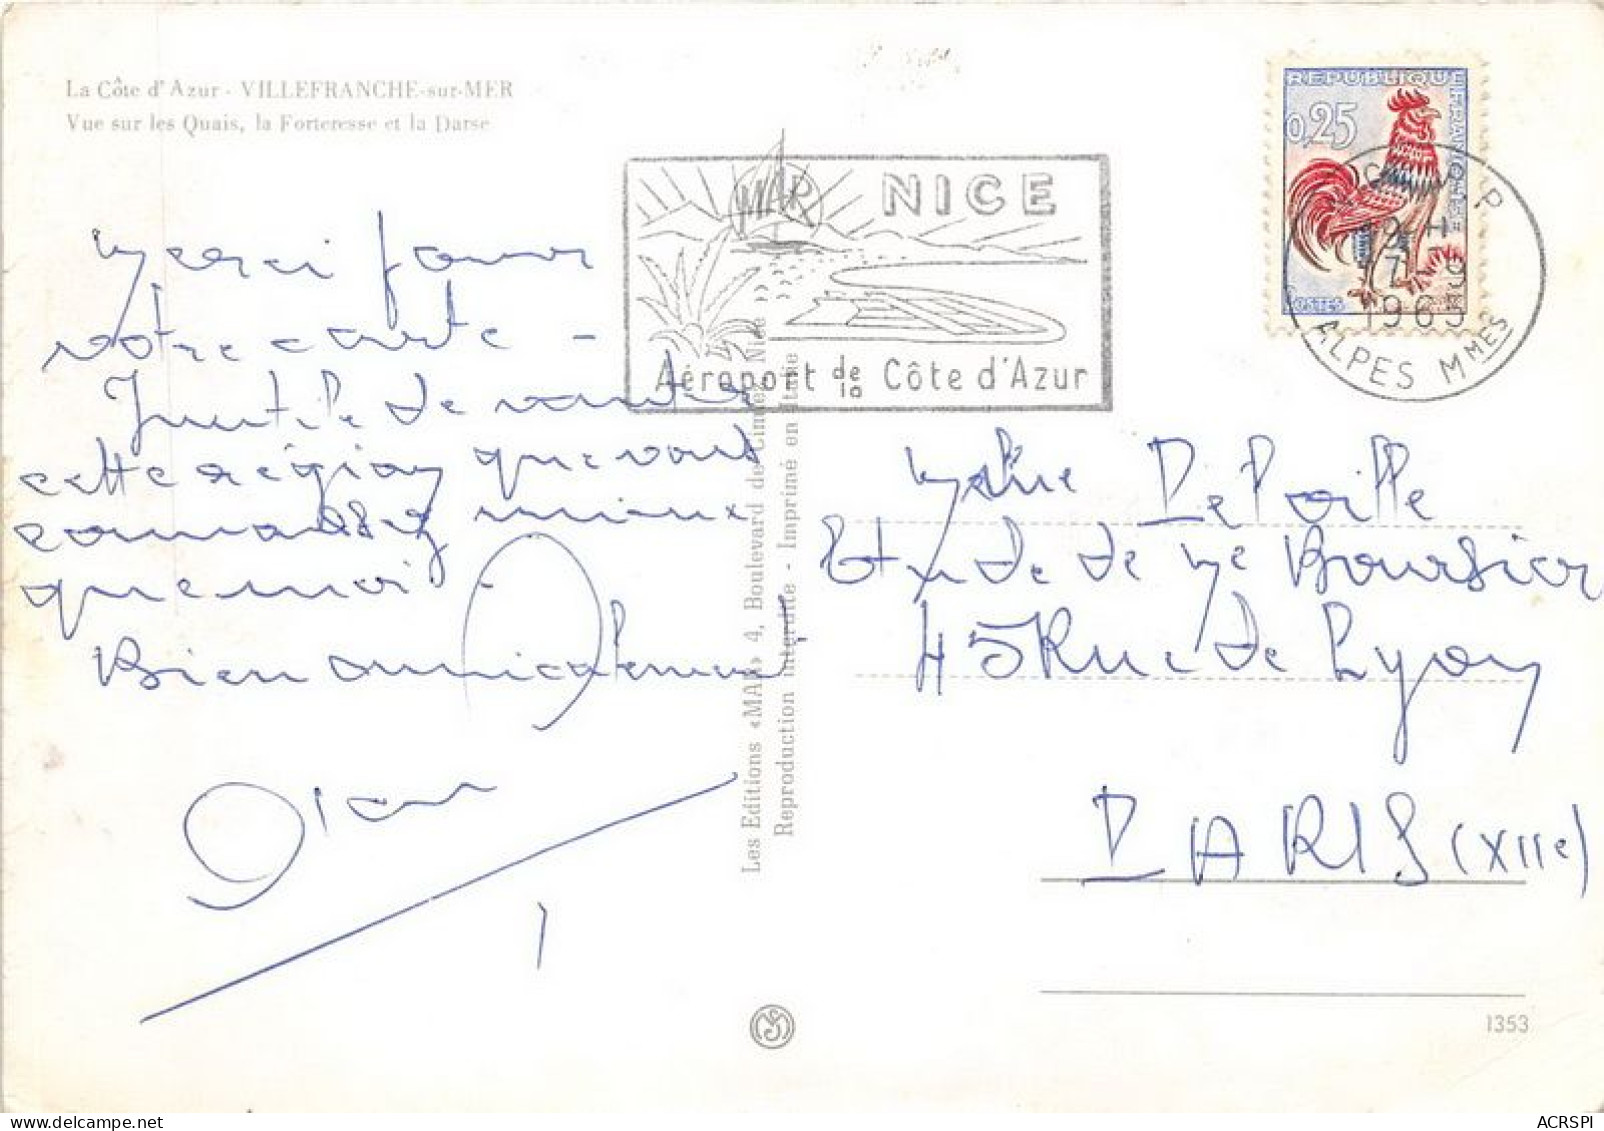 La Côte d'Azur - VILLEFRANCHE-sur-MER
Vue sur les Quais, la Forteresse et la Darse
REPUBLIQUE FRANÇAISE
0,25
POSTES
NICE
Aéroport de la Côte d'Azur
1963
ALPES MMES
Merci pour
votre carte -
Inutile de vanter
cette région que vous
connaissez mieux
que moi -
Bien amicalement
Les Editions «MAR» 4, Boulevard de Cimiez Nice
Reproduction interdite - Imprimé en Italie
Etude de Me Boursier
45 Rue de Lyon
PARIS (XIIe)
1353
ACRSPI